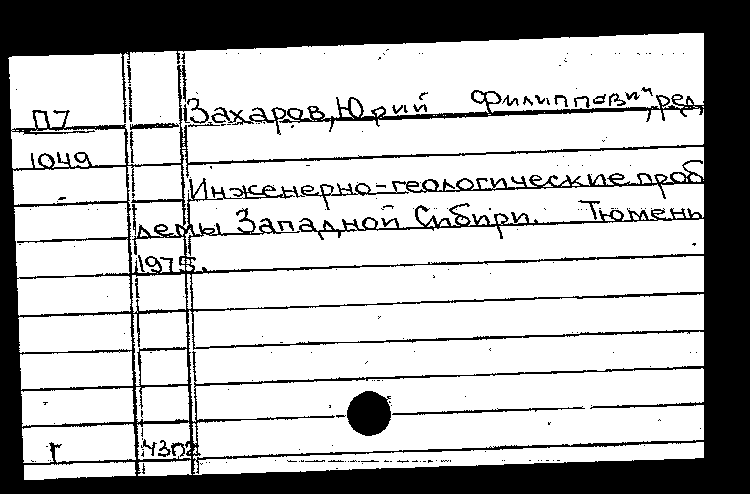 П7 Захаров, Юрий Филиппович, ред.
1049
Инженерно-геологические проб
лемы Западной Сибири. Тюмень
1975.
Г 4302